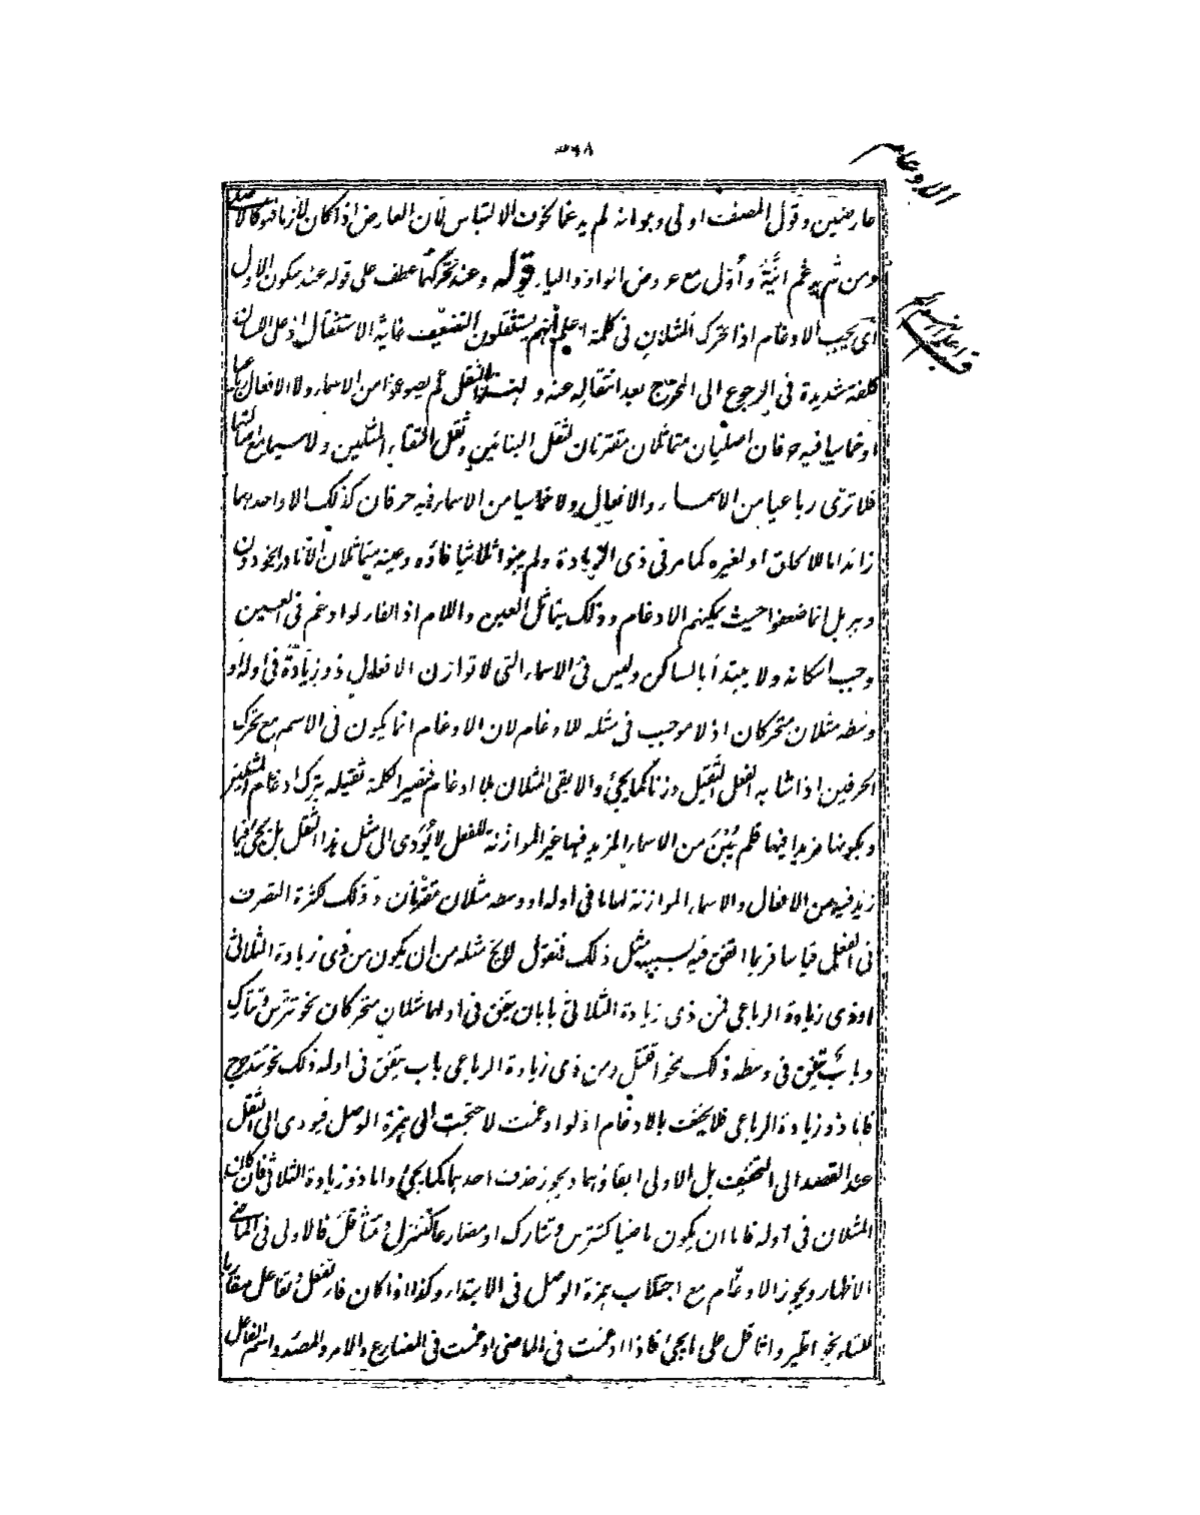 الادغام
عارضين وقول المصنف اولى وهو انه لم يدغما لخوف الالتباس لأن العارض اذا كان لازما فهو كالاصلى
ومن ثم يدغم ايّة وأوّل مع عروض الواو والياء قوله وعند تحركهما عطف على قوله عند سكون الاول
اى يجب الادغام اذا تحرك المثلان فى كلمة اعلم أنهم يستثقلون التضعيف غاية الاستثقال اذ على اللسان
كلفة شديدة فى الرجوع الى المخرج بعد انتقاله عنه ولهذا الثقل لم يصوغوا من الاسماء ولا الافعال رباعيا
او خماسيا فيه حرفان اصليان متماثلان مقترنان لثقل البنائين وثقل التقاء المثلين ولا سيما مع اصالتهما
فلا ترى رباعيا من الاسماء والافعال ولا خماسيا من الاسماء فيه حرفان كذلك الا واحدهما
زائد اما للالحاق او لغيره كما مر فى ذى الزيادة ولم يبنوا ثلاثيا فاؤه وعينه متماثلان الا نادرا نحو ددن
وببر بل انما ضعفوا حيث يمكنهم الادغام وذلك بتماثل العين واللام اذ الفاء لو ادغم فى العين
وجب اسكانه ولا يبتدأ بالساكن وليس فى الاسماء التى لا توازن الافعال ذو زيادة فى اوله او
وسطه مثلان متحركان اذ لا موجب فى مثله للادغام لان الادغام انما يكون فى الاسم مع تحرك
الحرفين اذا شابه الفعل الثقيل وزنا كما يجئ والا بقى المثلان بلا ادغام فتصير الكلمة ثقيلة بترك ادغام المثلين
وبكونها مزيدا فيها فلم يُبْنَ من الاسماء المزيد فيها غير الموازنة للفعل ما يؤدى الى مثل هذا الثقل بل يجئ فيما
زيد فيه من الافعال والاسماء الموازنة لها ما فى اوله او وسطه مثلان مقترنان وذلك لكثرة التصرف
فى الفعل قياسا فربما اتفق فيه بسببه مثل ذلك فنقول لا يخ مثله من ان يكون من ذى زيادة الثلاثى
او ذى زيادة الرباعى فمن ذى زيادة الثلاثى بابان يتفق فى اولهما مثلان متحركان نحو تترّس وتتارك
وبابٌ يتفق فى وسطه ذلك نحو اقتتل ومن ذى زيادة الرباعى باب يتفق فى اوله ذلك نحو تتدحرج
فاما ذو زيادة الرباعى فلا يخفف بالادغام اذ لو ادغمت لاحتجت الى همزة الوصل فيؤدى الى الثقل
عند القصد الى التخفيف بل الاولى ابقاؤهما ويجوز حذف احدهما كما يجئ واما ذو زيادة الثلاثى فان كان
المثلان فى اوله فاما ان يكون ماضيا كتترس وتتارك او مضارعا كتتنزل وتتثاقل فالاولى فى الماضى
الاظهار ويجوز الادغام مع اجتلاب همزة الوصل فى الابتداء وكذا اذا كان فاء تفعل وتفاعل مقاربا
للتاء نحو اطّير واثاقل على ما يجئ فاذا ادغمت فى الماضى ادغمت فى المضارع والامر والمصدر واسم الفاعل